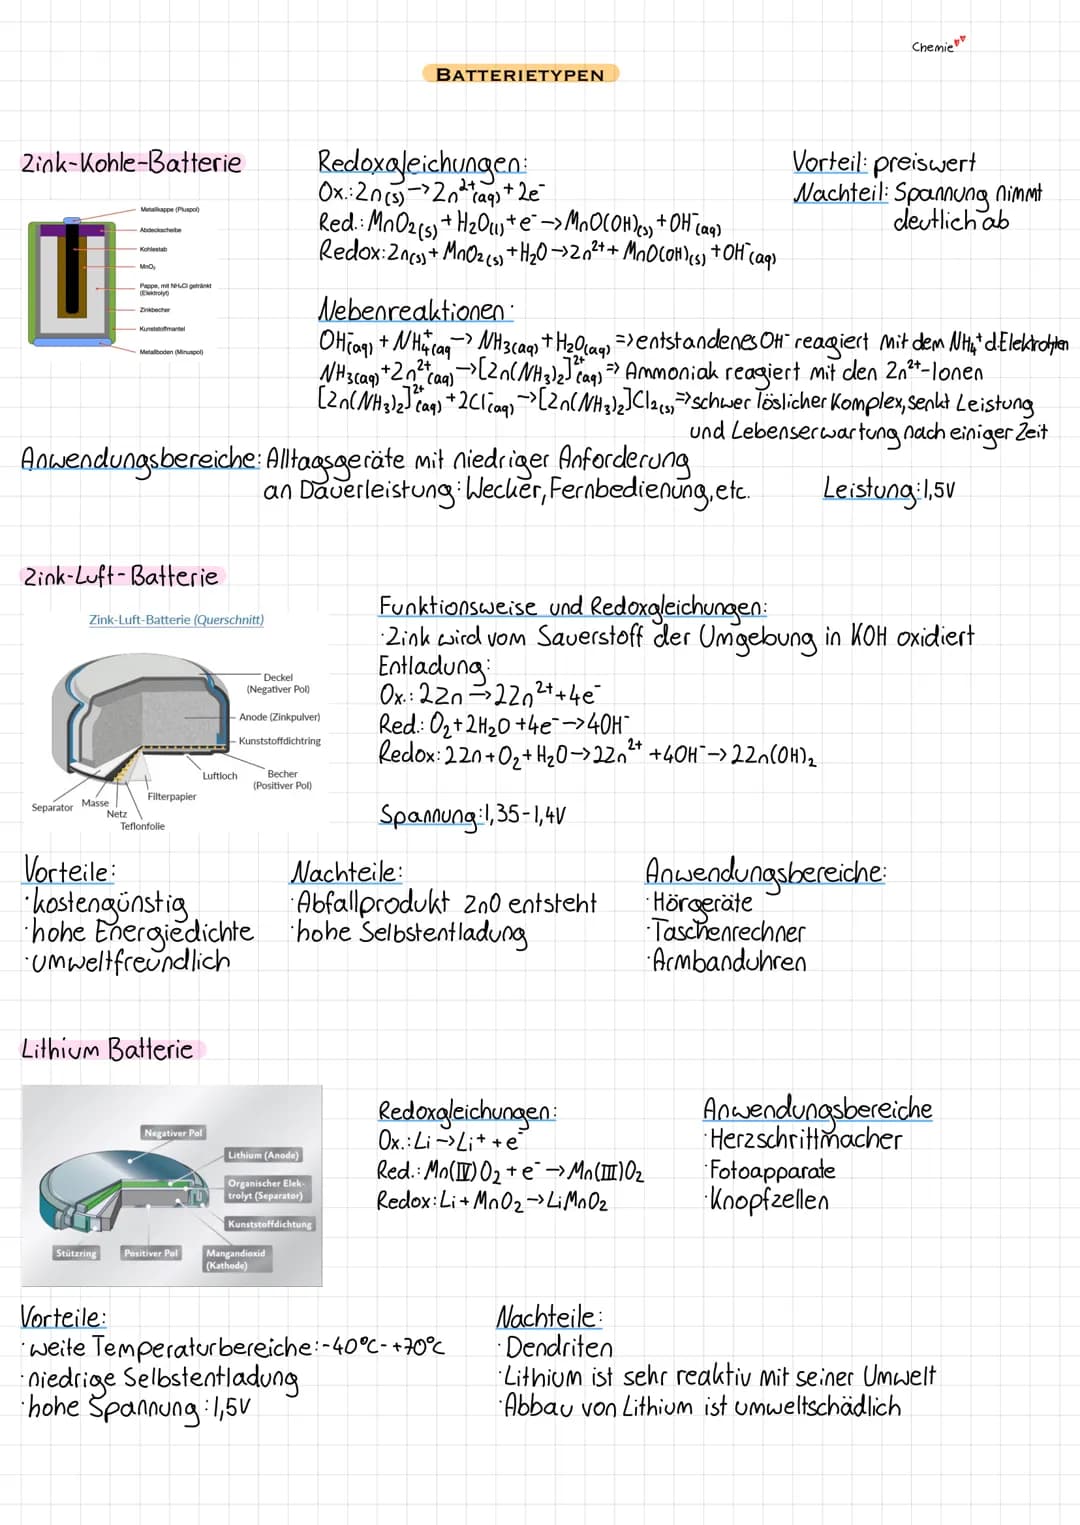 Chemie
BATTERIETYPEN
Zink-Kohle-Batterie
Metallkappe (Pluspol)
Abdeckscheibe
Kohlestab
MnO₂
Pappe, mit NH₄Cl getränkt
(Elektrolyt)
Zinkbecher
Kunststoffmantel
Metallboden (Minuspol)
Redoxgleichungen:
Ox.: Zn(s) -> Zn²⁺(aq) + 2e⁻
Red.: MnO₂(s) + H₂O(l) + e⁻ -> MnO(OH)(s) + OH⁻(aq)
Redox: Zn(s) + MnO₂(s) + H₂O -> Zn²⁺ + MnO(OH)(s) + OH⁻(aq)
Vorteil: preiswert
Nachteil: Spannung nimmt
deutlich ab
Nebenreaktionen:
OH⁻(aq) + NH₄⁺(aq -> NH₃(aq) + H₂O(aq) => entstandenes OH⁻ reagiert mit dem NH₄⁺ d. Elektrolyten
NH₃(aq) + Zn²⁺(aq) -> [Zn(NH₃)₂]²⁺(aq) => Ammoniak reagiert mit den Zn²⁺-Ionen
[Zn(NH₃)₂]²⁺(aq) + 2Cl⁻(aq) -> [Zn(NH₃)₂]Cl₂(s) => schwer löslicher Komplex, senkt Leistung
und Lebenserwartung nach einiger Zeit
Anwendungsbereiche: Alltagsgeräte mit niedriger Anforderung
an Dauerleistung: Wecker, Fernbedienung, etc.
Leistung: 1,5V
Zink-Luft-Batterie
Zink-Luft-Batterie (Querschnitt)
Deckel
(Negativer Pol)
Anode (Zinkpulver)
Kunststoffdichtring
Luftloch
Becher
(Positiver Pol)
Filterpapier
Separator
Masse
Netz
Teflonfolie
Funktionsweise und Redoxgleichungen:
·Zink wird vom Sauerstoff der Umgebung in KOH oxidiert
Entladung:
Ox.: 2Zn -> 2Zn²⁺ + 4e⁻
Red.: O₂ + 2H₂O + 4e⁻ -> 4OH⁻
Redox: 2Zn + O₂ + H₂O -> 2Zn²⁺ + 4OH⁻ -> 2Zn(OH)₂
Spannung: 1,35-1,4V
Vorteile:
·kostengünstig
·hohe Energiedichte
·umweltfreundlich
Nachteile:
·Abfallprodukt ZnO entsteht
·hohe Selbstentladung
Anwendungsbereiche:
·Hörgeräte
·Taschenrechner
·Armbanduhren
Lithium Batterie
Negativer Pol
Lithium (Anode)
Organischer Elek-
trolyt (Separator)
Kunststoffdichtung
Stützring
Positiver Pol
Mangandioxid
(Kathode)
Redoxgleichungen:
Ox.: Li -> Li⁺ + e⁻
Red.: Mn(IV)O₂ + e⁻ -> Mn(III)O₂
Redox: Li + MnO₂ -> LiMnO₂
Anwendungsbereiche
·Herzschrittmacher
·Fotoapparate
·Knopfzellen
Vorteile:
·weite Temperaturbereiche: -40°C - +70°C
·niedrige Selbstentladung
·hohe Spannung: 1,5V
Nachteile:
·Dendriten
·Lithium ist sehr reaktiv mit seiner Umwelt
·Abbau von Lithium ist umweltschädlich